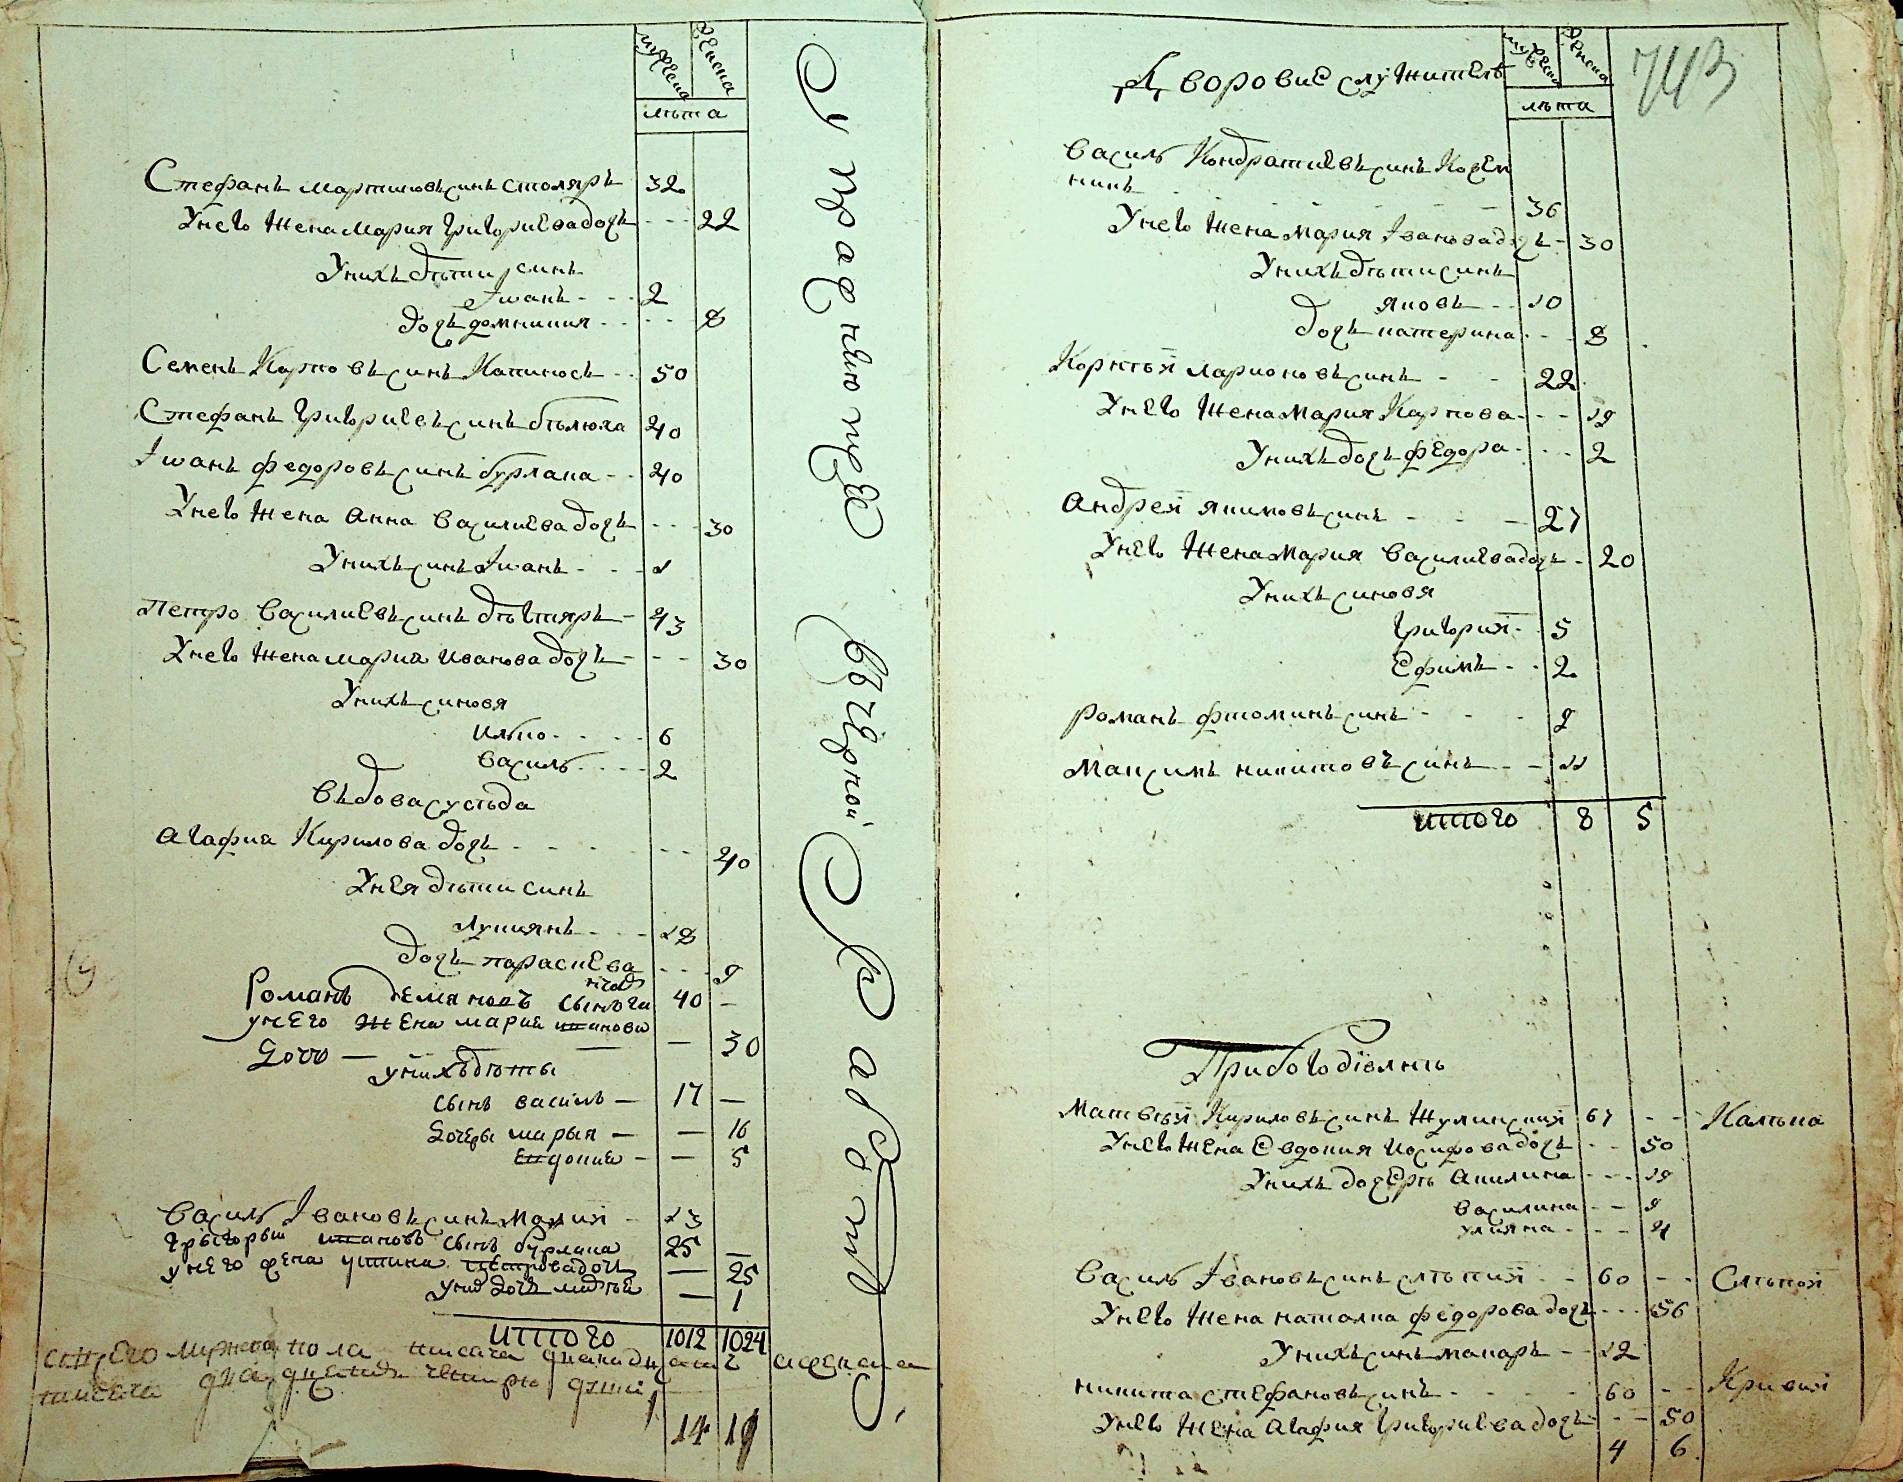 мужеска женска
лѣта
Стефанъ Мартиновъ синъ столяръ 32
У него жена Мария Григориева дочъ - - - 22
У нихъ дѣти синъ
Іванъ - - - 2
дочъ домникия - - - 8
Семенъ Карповъ синъ Капиносъ - - 50
Стефанъ Григориевъ синъ бѣлюха 40
Іванъ федоровъ синъ бурлака - - 40
У него жена Анна Василиева дочъ - - - 30
У нихъ синъ Іванъ - - - 1
Петро Василиевъ синъ дѣгтяръ - 43
У него жена Мария Иванова дочъ - - - 30
У нихъ синовя
Илько - - - - 6
Василь - - - - 2
Вдова сусѣда
Агафия Кирилова дочъ - - - - - - 40
У нея дѣти синъ
Лукиянъ - - - 18
дочъ параскева - - - 9
Романъ демяновъ сынъ 40 -
у него жена мария иванова
дочь — — — 30
у нихъ дѣты
сынъ василь — 17 —
дочеры марья — — 16
евдокия — — 5
Василь Івановъ синъ Малий - 13
григорый ивановъ сынъ бурлака 25 —
у него жена устина петрова дочь — 25
у них дочь — 1
итого 1012 1024
сего мужеска пола тисяча дванадцать а женска
тисяча двадцять четыри души
14 19
У праднюю пред
вѣчерной
Работи
Дворовие служителѣ
мужеска женска
лѣта
743
Василь Кондратиевъ синъ Кожем
никъ - - - - - 36
У него жена Мария Іванова дочъ - 30
У нихъ дѣти синъ
яковъ - - 10
дочъ катерина - - - 8
Корнѣй Ларионовъ синъ - - 22
У него жена Мария Карпова - - - 19
У нихъ дочъ федора - - - 2
Андрей якимовъ синъ - - - 27
У него жена Мария Василиева дочъ - 20
У нихъ синовя
Григорий - - 5
Ефимъ - - 2
Романъ фтоминъ синъ - - - 9
Максимъ никитовъ синъ - - - 11
итого 8 5
При богодѣлнѣ
Матвѣй Кириловъ синъ Жулинский 67 - - Калѣка
У него жена Евдокия Иосифова дочъ - - 50
У нихъ дочерѣ Акилина - - - 19
Василина - - 9
улияна - - - 4
Василь Івановъ синъ слѣпий - - 60 - - Слѣпой
У него жена наталка федорова дочъ - - - 56
У нихъ синъ макаръ - - 12
никита стефановъ синъ - - - - - 60 - - Кривий
У него жена Агафия Григориева дочъ - - - 50
4 6